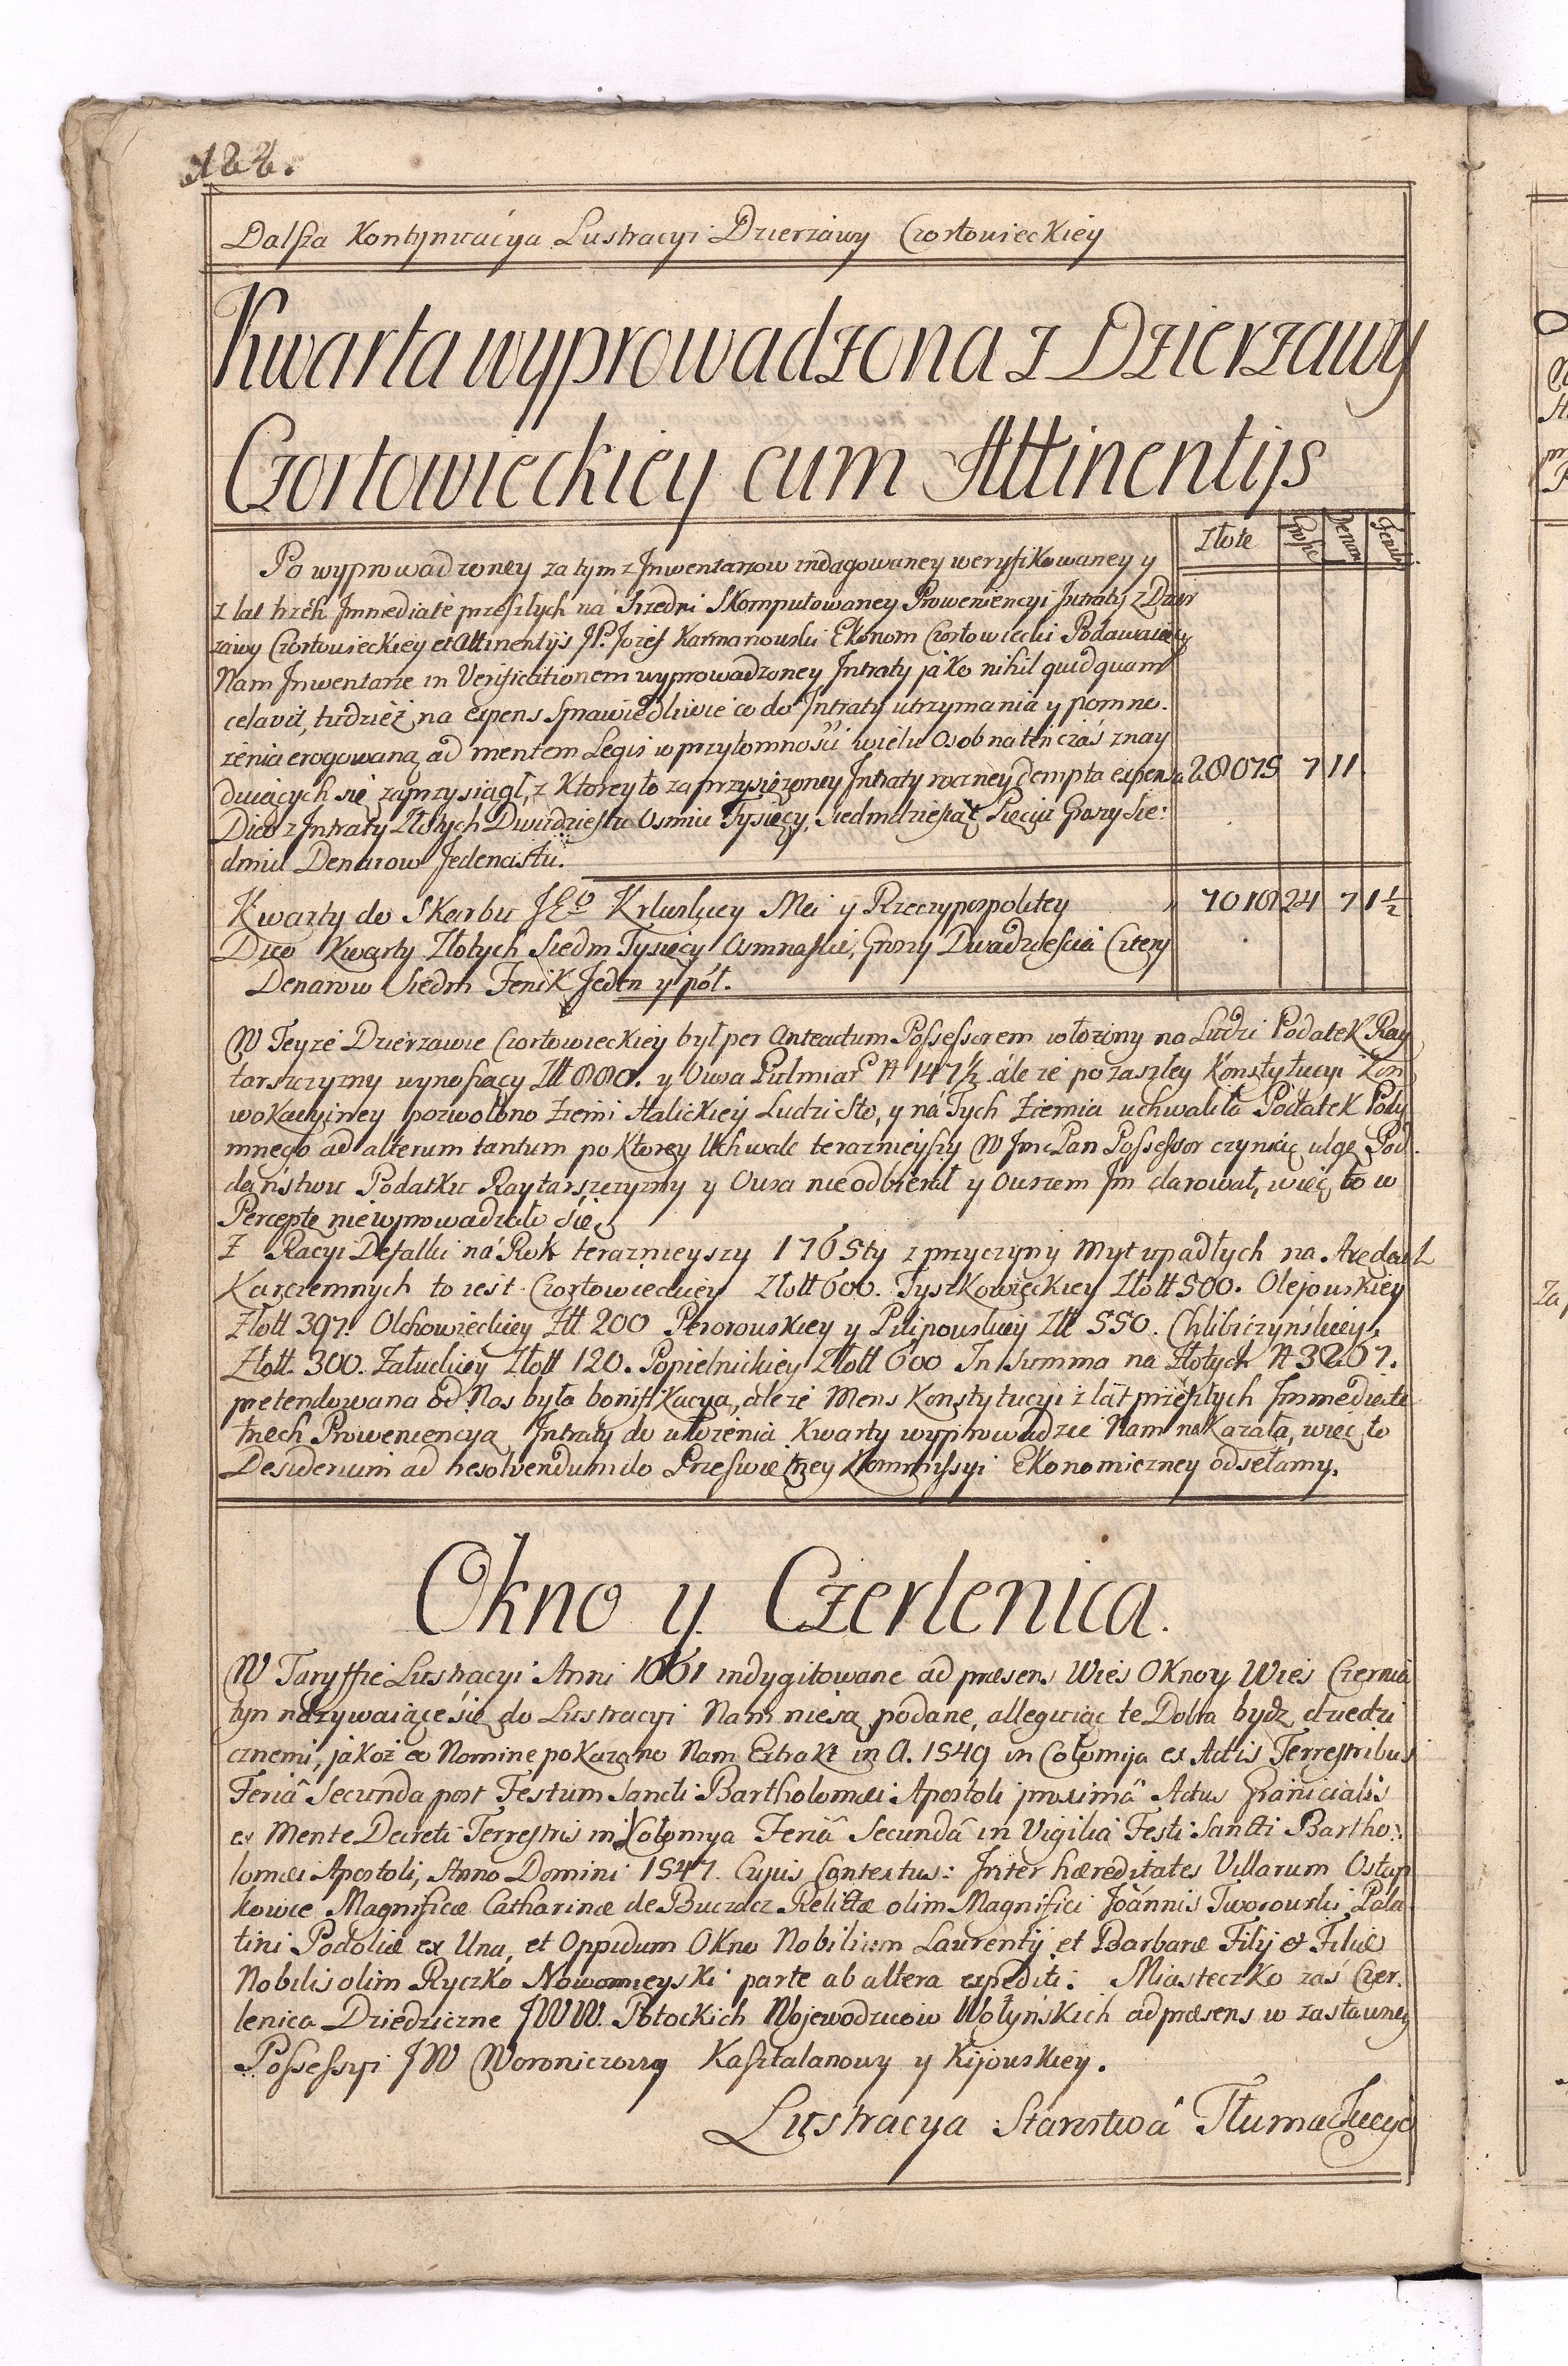 122.
Dalsza Kontynuacya Lustracyi Dzierżawy Czortowieckiey
Kwarta wyprowadzona z Dzierżawy
Czortowieckiey cum Attinentijs
Złote Grosze Denar Fenik
Po wyprowadzoney za tym z Inwentarzow indagowaney weryfikowaney y
z lat trzéh Immediatè przeszłych ná Srzedni Skomputowaney Proweniencyi Intraty z Dzier
żawy Czortowieckiey et Attinentijs JP. Jozef Karmanowski Ekonom Czortowiecki Podawaiący
Nam Inwentarze in Verificationem wyprowadzoney Intraty jako nihil quidquam
celavit, tudzież na expens sprawiedliwie co do Intraty utrzymania y pomno-
żenia erogowaną ad mentem Legis w przytomności wielu Osob na ten czás znay
duiących się zaprzysiągł, z Ktorey to zaprzysiężoney Intraty roczney dempta expensa 28075 7 11
Dico z Intraty Złotych Dwudziestu Osmiu Tysięcy, Siedmdziesiąt Pięciu Groszy Sie:
dmiu Denarow Jedenastu.
Kwarty do Skarbu JEo Krlewskiey Mci y Rzeczypospolitey 7018 24 7 1½
Dico Kwarty Złotych Siedm Tysięcy Osmnaście, Groszy Dwadzieścia Cztery
Denarow Siedm Fenik Jeden y pół.
W Teyże Dzierżawie Czortowieckiey był per Anteactum Possessorem włożony na Ludzi Podatek Ray
tarszczyzny wynoszący Złł 880. y Owsa Pułmiar N 147½ ále że po zaszłey Konstytucyi Kon
wokacyiney pozwolono Ziemi Halickiey Ludzi Sto, y ná Tych Ziemia uchwaliła Podatek Pody
mnego ad alterum tantum po Ktorey Uchwale teraznieyszy W Jmc Pan Possessor czyniąc ulgę Pod-
daństwu Podatku Raytarszczyzny y Owsa nie odbierał y owszem Im darował, więc to w
Perceptę nie wprowadziło się
Z Racyi Defalki ná Rok teraznieyszy 1765ty z przyczyny Myt upadłych na Arędach
Karczemnych to iest Czortowieckiey Złott 600. Tyszkowieckiey Złott 500. Olejowskiey
Złott 397. Olchowieckiey Złł 200 Perorowskiey y Pilipowskiey Złł 550. Chlibiczyńskiey
Złott 300. Załuckiey Złott 120. Popielnickiey Złott 600 In Summa na Złotych N 3267.
pretendowana od Nas była bonifikacya, ale że Mens Konstytucyi z lat przeszłych Immediate
trzech Proweniencyą Intraty do ułożenia Kwarty wyprowadzić Nam nakazała, więc to
Desiderium ad resolvendum do Prześwietney Kommissyi Ekonomiczney odsełamy.
Okno y Czerlenica.
W Taryffie Lustracyi Anni 1661 indygitowane ad præsens Wieś Okno y Wieś Czernia
tyn názywaiące się do Lustracyi Nam niesą podane, alleguiąc te Dobra bydź dziedzi
cznemi, jakoż eo Nomine pokazano Nam Extrakt in A. 1549 in Cołomija ex Actis Terrestribus
Feriâ Secunda post Festum Sancti Bartholomæi Apostoli proximâ Actus Granicialis
ex Mente Decreti Terrestris in Kołomya Feriâ Secundâ in Vigilia Festi Sancti Bartho:
lomæi Apostoli, Anno Domini 1547. Cujus Contextus: Inter hæreditates Villarum Ostap
kowce Magnificæ Catharinæ de Buczacz Relictæ olim Magnifici Joannis Tworowski Pala
tini Podoliæ ex Una, et Oppidum Okno Nobilium Laurentij et Barbaræ Filij et Filiæ
Nobilis olim Ryczko Nowomieyski parte ab altera expediti. Miasteczko zaś Czer-
lenica Dziedziczne JWW. Potockich Wojewodzicow Wołyńskich ad præsens w zastawney
Possessyi JW Woroniczowy Kasztalanowy y Kijowskiey.
Lustracya Starostwa Tłumackiego